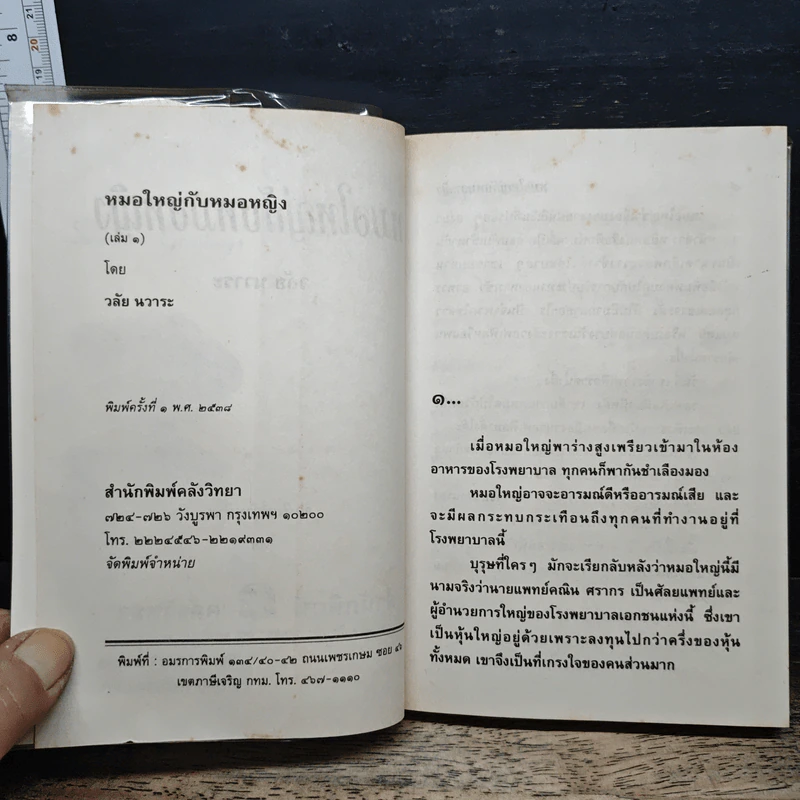 8
21
20
19
หมอใหญ่กับหมอหญิง
(เล่ม ๑)
โดย
วลัย นวาระ
พิมพ์ครั้งที่ ๑ พ.ศ. ๒๕๓๘
สำนักพิมพ์คลังวิทยา
๗๒๔-๗๒๖ วังบูรพา กรุงเทพฯ ๑๐๒๐๐
โทร. ๒๒๒๔๕๔๖-๒๒๑๙๓๓๑
จัดพิมพ์จำหน่าย
พิมพ์ที่ : อมรการพิมพ์ ๑๓๔/๔๐-๔๒ ถนนเพชรเกษม ซอย ๔๖
เขตภาษีเจริญ กทม. โทร. ๔๖๗-๑๑๑๐
๑...
เมื่อหมอใหญ่พาร่างสูงเพรียวเข้ามาในห้อง
อาหารของโรงพยาบาล ทุกคนก็พากันชำเลืองมอง
หมอใหญ่อาจจะอารมณ์ดีหรืออารมณ์เสีย และ
จะมีผลกระทบกระเทือนถึงทุกคนที่ทำงานอยู่ที่
โรงพยาบาลนี้
บุรุษที่ใครๆ มักจะเรียกลับหลังว่าหมอใหญ่นี้มี
นามจริงว่านายแพทย์คณิน ศรากร เป็นศัลยแพทย์และ
ผู้อำนวยการใหญ่ของโรงพยาบาลเอกชนแห่งนี้ ซึ่งเขา
เป็นหุ้นใหญ่อยู่ด้วยเพราะลงทุนไปกว่าครึ่งของหุ้น
ทั้งหมด เขาจึงเป็นที่เกรงใจของคนส่วนมาก